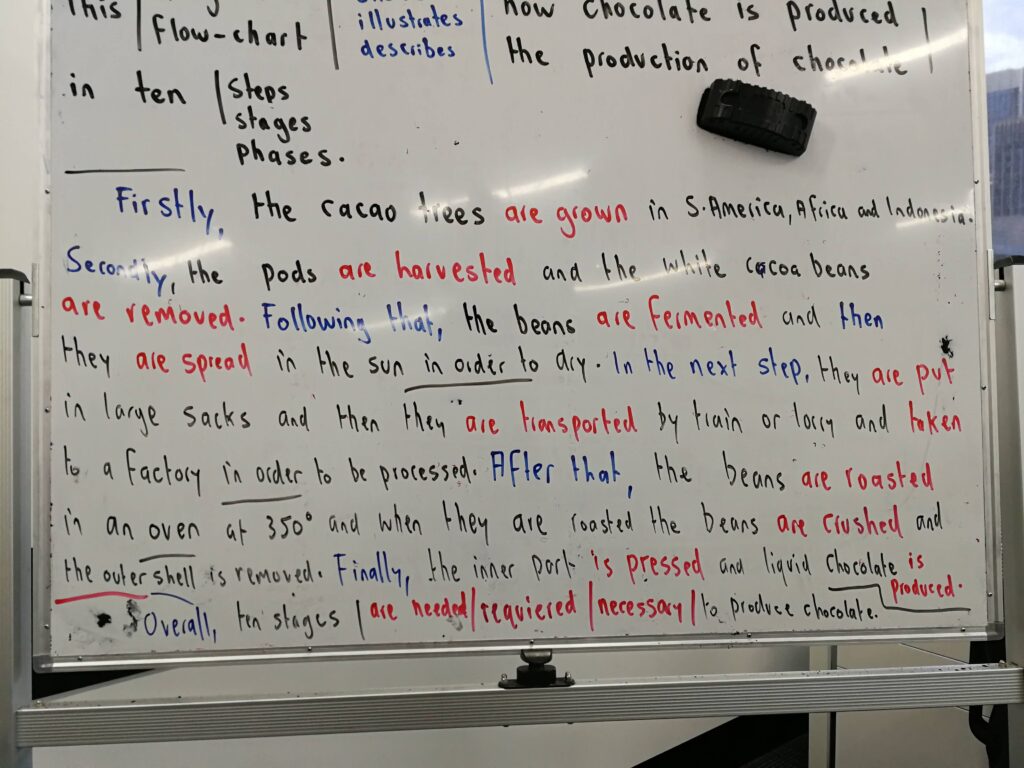 This | flow-chart | illustrates | how chocolate is produced |
describes | the production of chocolate |
in ten | steps
stages
phases.
Firstly, the cacao trees are grown in S.America, Africa and Indonesia.
Secondly, the pods are harvested and the white cocoa beans
are removed. Following that, the beans are fermented and then
they are spread in the sun in order to dry. In the next step, they are put
in large sacks and then they are transported by train or lorry and taken
to a factory in order to be processed. After that, the beans are roasted
in an oven at 350° and when they are roasted the beans are crushed and
the outer shell is removed. Finally, the inner part is pressed and liquid chocolate is
produced.
Overall, ten stages | are needed/requiered/necessary/ to produce chocolate.